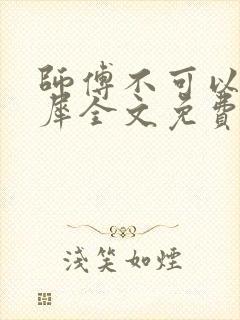 師傅不可以
犀全文免費
淺笑如煙